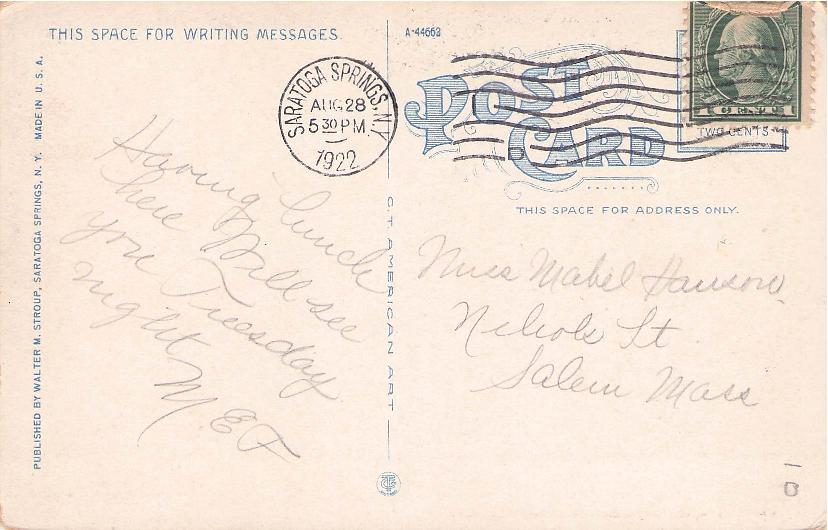 THIS SPACE FOR WRITING MESSAGES
A-44663
POST CARD
SARATOGA SPRINGS, N.Y.
AUG 28
5 30 PM
1922
TWO CENTS
THIS SPACE FOR ADDRESS ONLY.
MADE IN U.S.A.
PUBLISHED BY WALTER M. STROUP, SARATOGA SPRINGS, N. Y.
Having lunch
here Will see
you Tuesday
night
M E F
C.T. AMERICAN ART
Miss Mabel Hanson
Nichols St.
Salem Mass
D